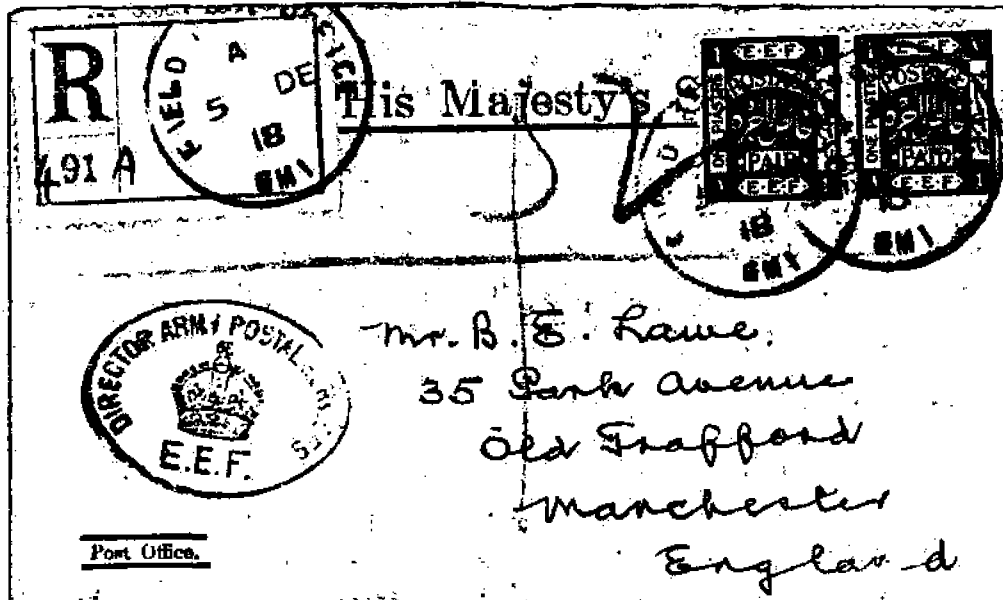 R
491 A
FIELD
A
5 DE
18
EM1
His Majesty's
E.E.F
POSTAGE
ONE PIASTRE
PAID
E.E.F
1
E.E.F
POSTAGE
ONE PIASTRE
PAID
E.E.F
1
18
EM1
EM1
DIRECTOR ARMY POSTAL
E.E.F.
Mr. B. E. Lawe.
35 Park Avenue
Old Trafford
Manchester
England
Post Office.